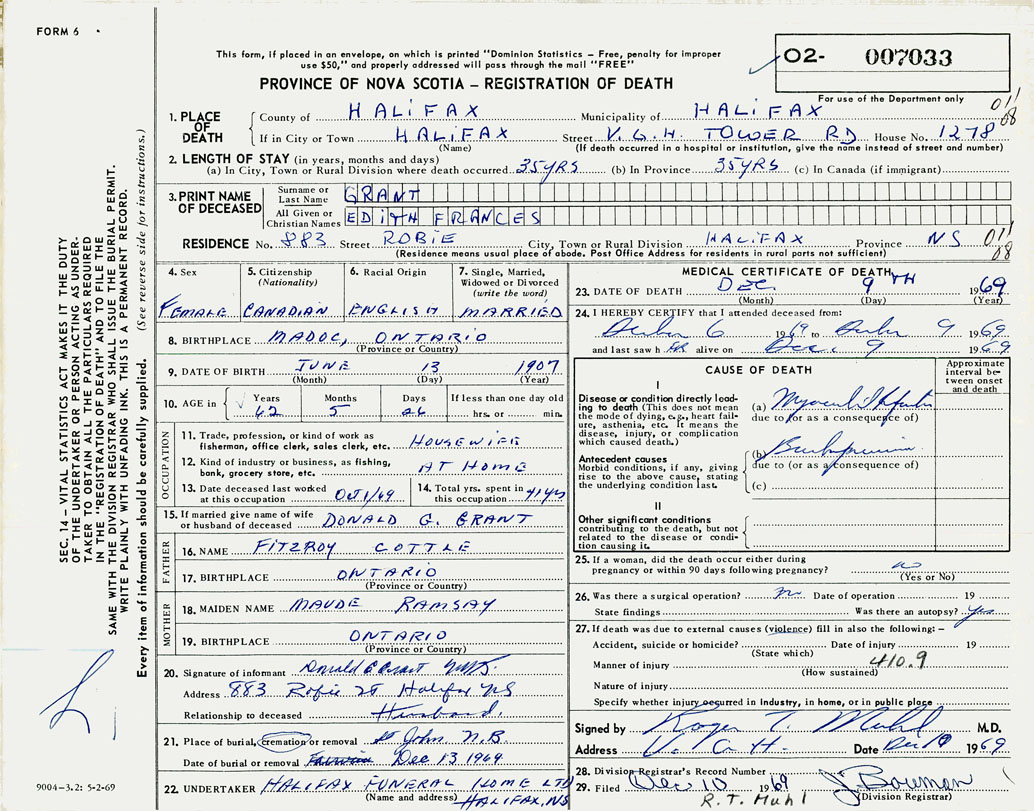 FORM 6
This form, if placed in an envelope, on which is printed "Dominion Statistics – Free, penalty for improper
use $50," and properly addressed will pass through the mail "FREE"
PROVINCE OF NOVA SCOTIA – REGISTRATION OF DEATH
O2- 007033
For use of the Department only
011
08
1. PLACE OF DEATH
County of HALIFAX Municipality of HALIFAX
If in City or Town HALIFAX Street V. G. H. TOWER RD House No. 1278
(Name) (If death occurred in a hospital or institution, give the name instead of street and number)
2. LENGTH OF STAY (in years, months and days)
(a) In City, Town or Rural Division where death occurred 35 YRS (b) In Province 35 YRS (c) In Canada (if immigrant)
3. PRINT NAME OF DECEASED
Surname or Last Name GRANT
All Given or Christian Names EDITH FRANCES
RESIDENCE No. 883 Street ROBIE City, Town or Rural Division HALIFAX Province NS 011
08
(Residence means usual place of abode. Post Office Address for residents in rural parts not sufficient)
4. Sex 5. Citizenship (Nationality) 6. Racial Origin 7. Single, Married, Widowed or Divorced (write the word)
FEMALE CANADIAN ENGLISH MARRIED
8. BIRTHPLACE MADOC, ONTARIO
(Province or Country)
9. DATE OF BIRTH JUNE 13 1907
(Month) (Day) (Year)
10. AGE in Years Months Days If less than one day old
62 5 26 hrs. or min.
OCCUPATION
11. Trade, profession, or kind of work as
fisherman, office clerk, sales clerk, etc. HOUSEWIFE
12. Kind of industry or business, as fishing,
bank, grocery store, etc. AT HOME
13. Date deceased last worked
at this occupation OCT 1/69
14. Total yrs. spent in
this occupation 41 yrs
15. If married give name of wife
or husband of deceased DONALD G. GRANT
FATHER
16. NAME FITZROY COTTLE
17. BIRTHPLACE ONTARIO
(Province or Country)
MOTHER
18. MAIDEN NAME MAUDE RAMSAY
19. BIRTHPLACE ONTARIO
(Province or Country)
20. Signature of informant Donald G Grant
Address 883 Robie St Halifax NS
Relationship to deceased Husband.
21. Place of burial, cremation or removal St John N.B.
Date of burial or removal Dec 13 1969
22. UNDERTAKER HALIFAX FUNERAL HOME LTD
(Name and address) HALIFAX, NS
MEDICAL CERTIFICATE OF DEATH
23. DATE OF DEATH DEC 9TH 1969
(Month) (Day) (Year)
24. I HEREBY CERTIFY that I attended deceased from:
6 1969 to 9 1969
and last saw h er alive on Dec. 9 1969
CAUSE OF DEATH
Approximate interval between onset and death
I
Disease or condition directly leading
to death (This does not mean
the mode of dying, e.g., heart failure,
asthenia, etc. It means the
disease, injury, or complication
which caused death.)
(a) Myocardial Infarction
due to (or as a consequence of)
Antecedent causes
Morbid conditions, if any, giving
rise to the above cause, stating
the underlying condition last.
(b)
due to (or as a consequence of)
(c)
II
Other significant conditions
contributing to the death, but not
related to the disease or condition
causing it.
25. If a woman, did the death occur either during
pregnancy or within 90 days following pregnancy? no
(Yes or No)
26. Was there a surgical operation? no Date of operation 19
State findings Was there an autopsy? yes
27. If death was due to external causes (violence) fill in also the following: –
Accident, suicide or homicide? Date of injury 19
(State which)
Manner of injury 410.9
(How sustained)
Nature of injury
Specify whether injury occurred in Industry, in home, or in public place
Signed by Roger T. Muhl M.D.
Address V. G. H. Date Dec 10 1969
28. Division Registrar's Record Number
29. Filed Dec 10 1969 J. Bowman
R. T. Muhl (Division Registrar)
SEC. 14 – VITAL STATISTICS ACT MAKES IT THE DUTY
OF THE UNDERTAKER OR PERSON ACTING AS UNDER-
TAKER TO OBTAIN ALL THE PARTICULARS REQUIRED
IN THE "REGISTRATION OF DEATH" AND TO FILE THE
SAME WITH THE DIVISION REGISTRAR WHO SHALL ISSUE THE BURIAL PERMIT.
WRITE PLAINLY WITH UNFADING INK. THIS IS A PERMANENT RECORD.
Every item of information should be carefully supplied. (See reverse side for instructions.)
9004–3.2: 5-2-69